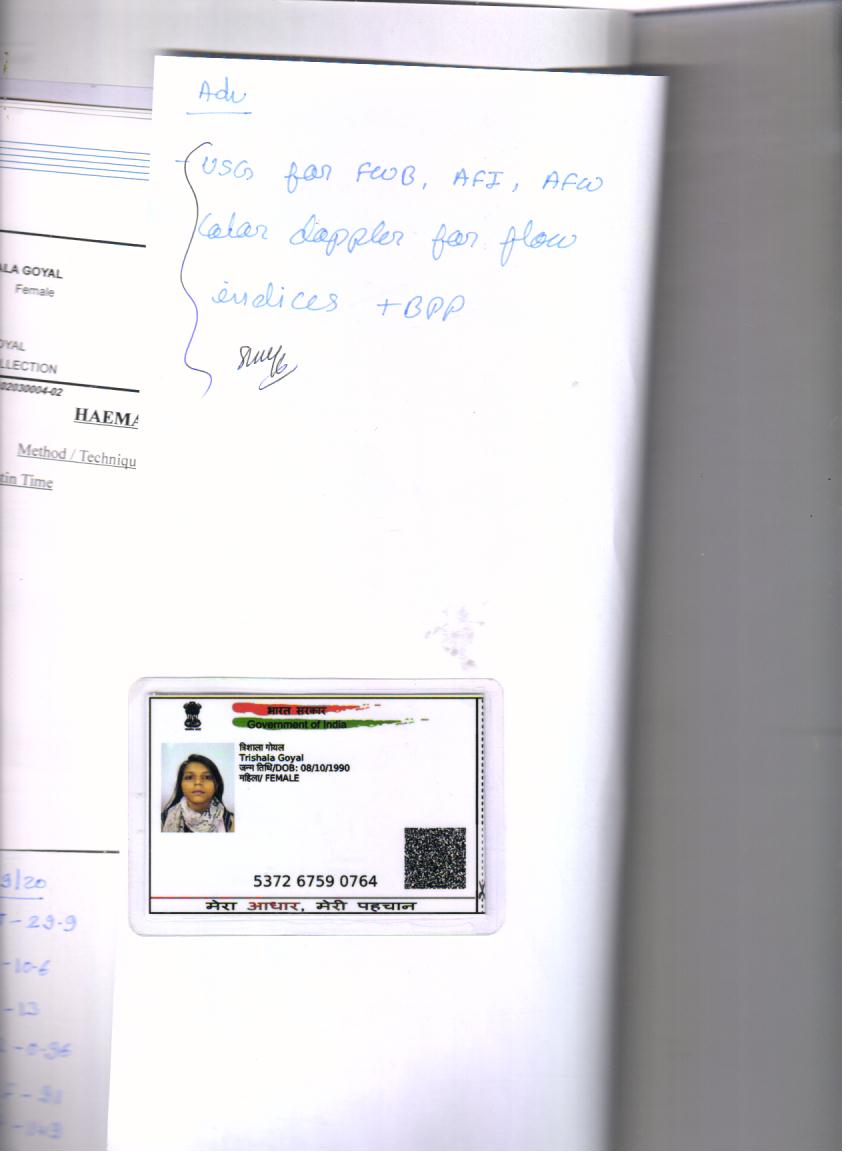 Adv
USG for FWB, AFI, AFW
Color doppler for flow
indices + BPP
ALA GOYAL
Female
OYAL
LLECTION
02030004-02
HAEMA
Method / Techniqu
tin Time
भारत सरकार
Government of India
त्रिशाला गोयल
Trishala Goyal
जन्म तिथि/DOB: 08/10/1990
महिला/ FEMALE
5372 6759 0764
मेरा आधार, मेरी पहचान
9/20
- 29.9
- 10.6
- 13
- 0.96
- 91